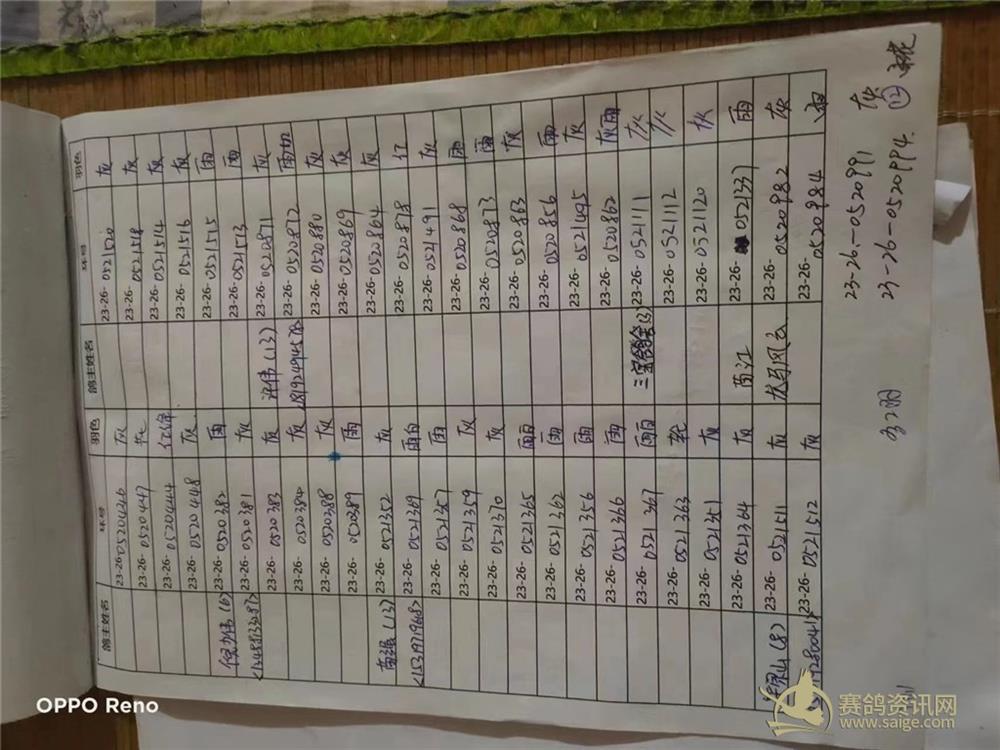 鸽主姓名 环号 羽色 鸽主姓名 环号 羽色
23-26-0520446 灰 23-26-0521520 灰
23-26-0520447 灰 23-26-0521518 灰
23-26-0520444 红绛 23-26-0521514 灰
23-26-0520448 灰 23-26-0521516 灰
(6) 23-26-0520382 雨 23-26-0521515 雨
23-26-0520381 灰 23-26-0521513 雨
23-26-0520383 灰 伟(13) 23-26-0520871 灰
23-26-0520384 灰 23-26-0520872
23-26-0520388 灰 23-26-0520880 灰
23-26-0520389 雨 23-26-0520869 灰
高强(13) 23-26-0521352 灰 23-26-0520864 灰
23-26-0521369 雨白 23-26-0520878 红
23-26-0521357 雨 23-26-0521491 灰
23-26-0521359 灰 23-26-0520868 雨
23-26-0521370 灰 23-26-0520873 雨
23-26-0521365 雨白 23-26-0520863 灰
23-26-0521362 雨 23-26-0520856 雨
23-26-0521356 雨 23-26-0521495 灰
23-26-0521366 雨 23-26-0520862 灰雨
23-26-0521367 雨白 (3) 23-26-0521111 灰
23-26-0521363 23-26-0521112 灰
23-26-0521351 灰 23-26-0521120 灰
23-26-0521364 灰 23-26-0521337 雨
(8) 23-26-0521511 灰 23-26-0520982 灰
23-26-0521512 灰 23-26-0520984
23-26-0520991 灰
23-26-0520994 (12)
OPPO Reno
赛鸽资讯网
www.saige.com